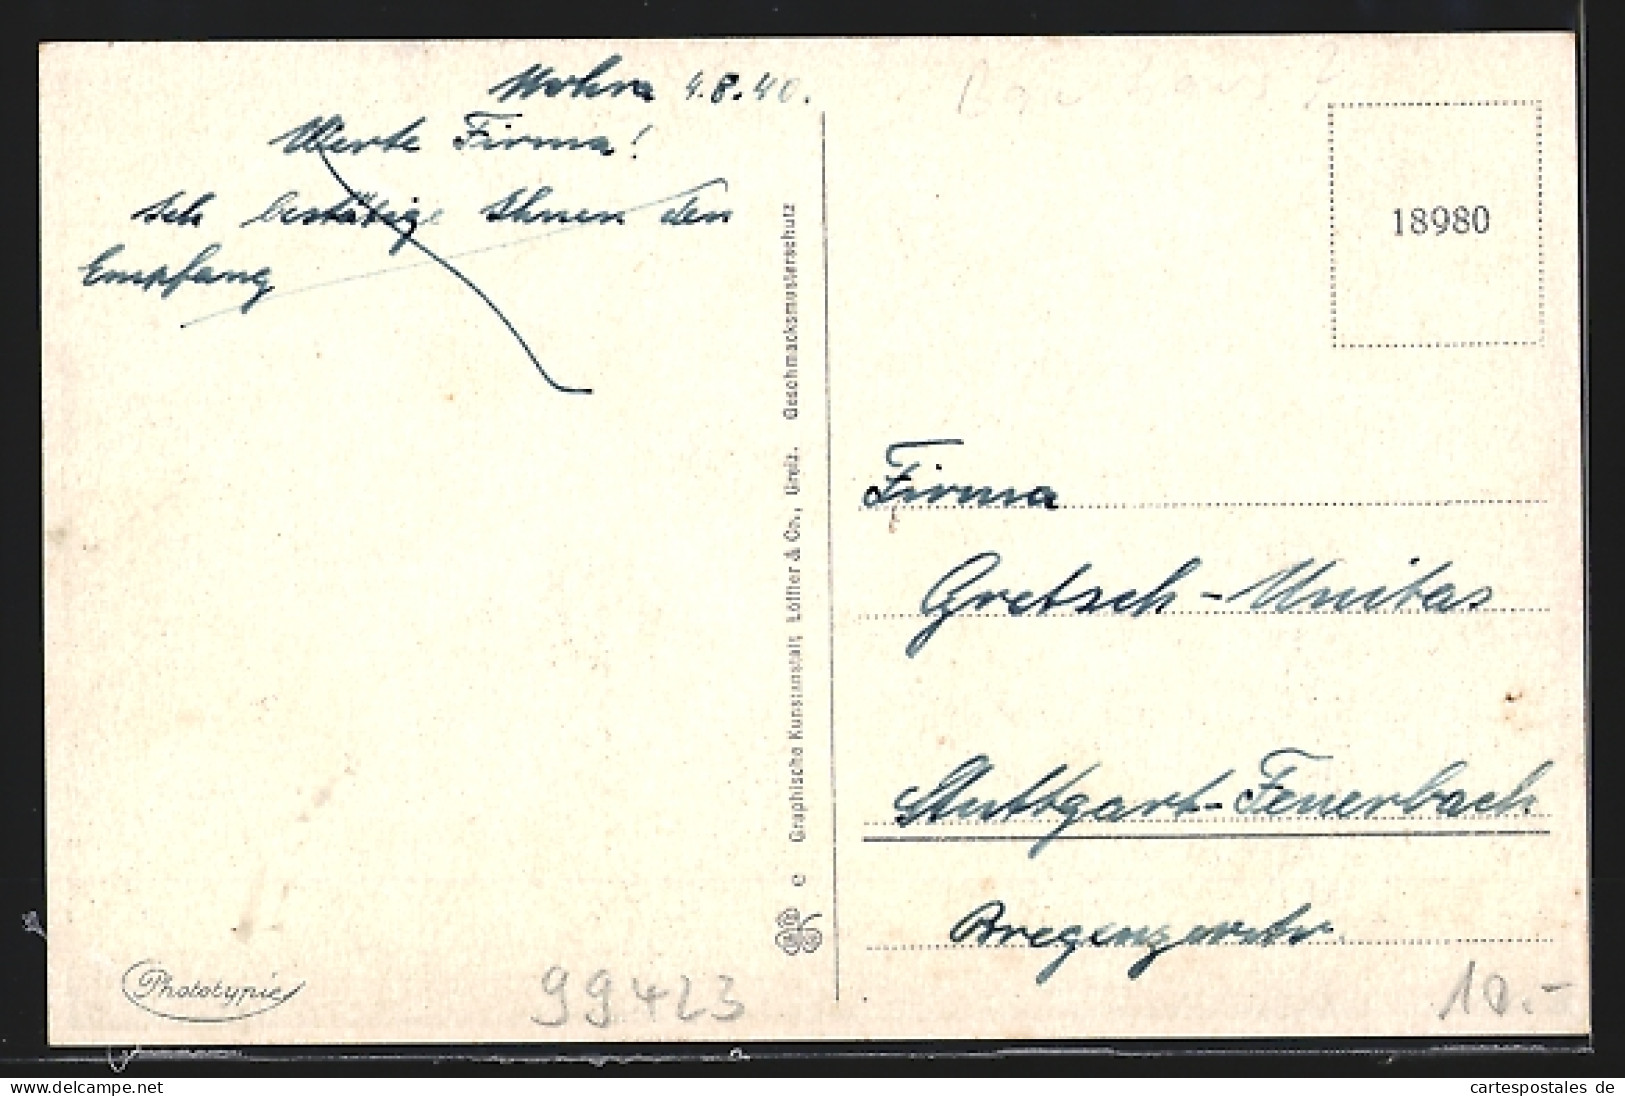 4.8.40.
Werte Firma!
Ich bestätige Ihnen den
Empfang
Geschmacksmusterschutz
Graphische Kunstanstalt Löffler & Co., Greiz.
Phototypie
99423
18980
Firma
Gretsch-Unitas
Stuttgart-Feuerbach
Bregenzerstr.
10.-
cartespostales.de